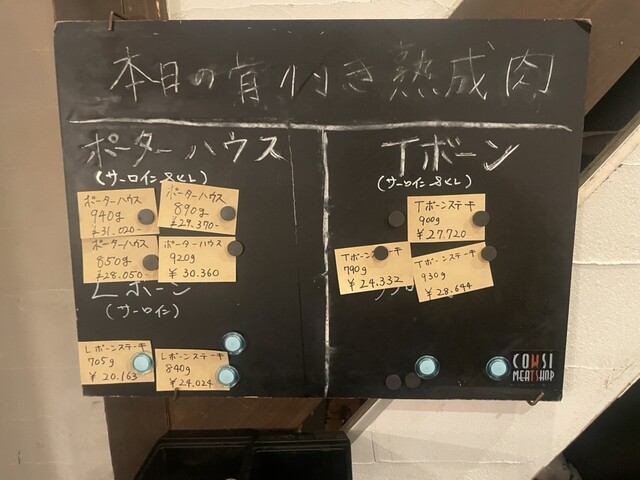 本日の骨付き熟成肉
ポーターハウス
(サーロイン&ヒレ)
ポーターハウス
940g
¥31.020-
ポーターハウス
890g
¥29.370-
ポーターハウス
850g
¥28.050-
ポーターハウス
920g
¥30.360
Lボーン
(サーロイン)
Lボーンステーキ
705g
¥20.163
Lボーンステーキ
840g
¥24.024
Tボーン
(サーロイン&ヒレ)
Tボーンステーキ
900g
¥27.720
Tボーンステーキ
790g
¥24.332
Tボーンステーキ
930g
¥28.644
COWSI
MEATSHOP